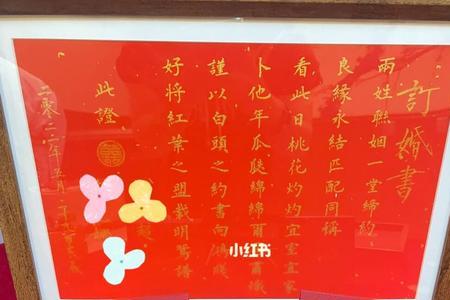 訂婚書
兩姓聯姻一堂締約
良緣永結匹配同稱
看此日桃花灼灼宜室宜家
卜他年瓜瓞綿綿爾熾
謹以白頭之約書向鴻箋
好將紅葉之盟載明鴛譜
此證
二零二年五月
小红书